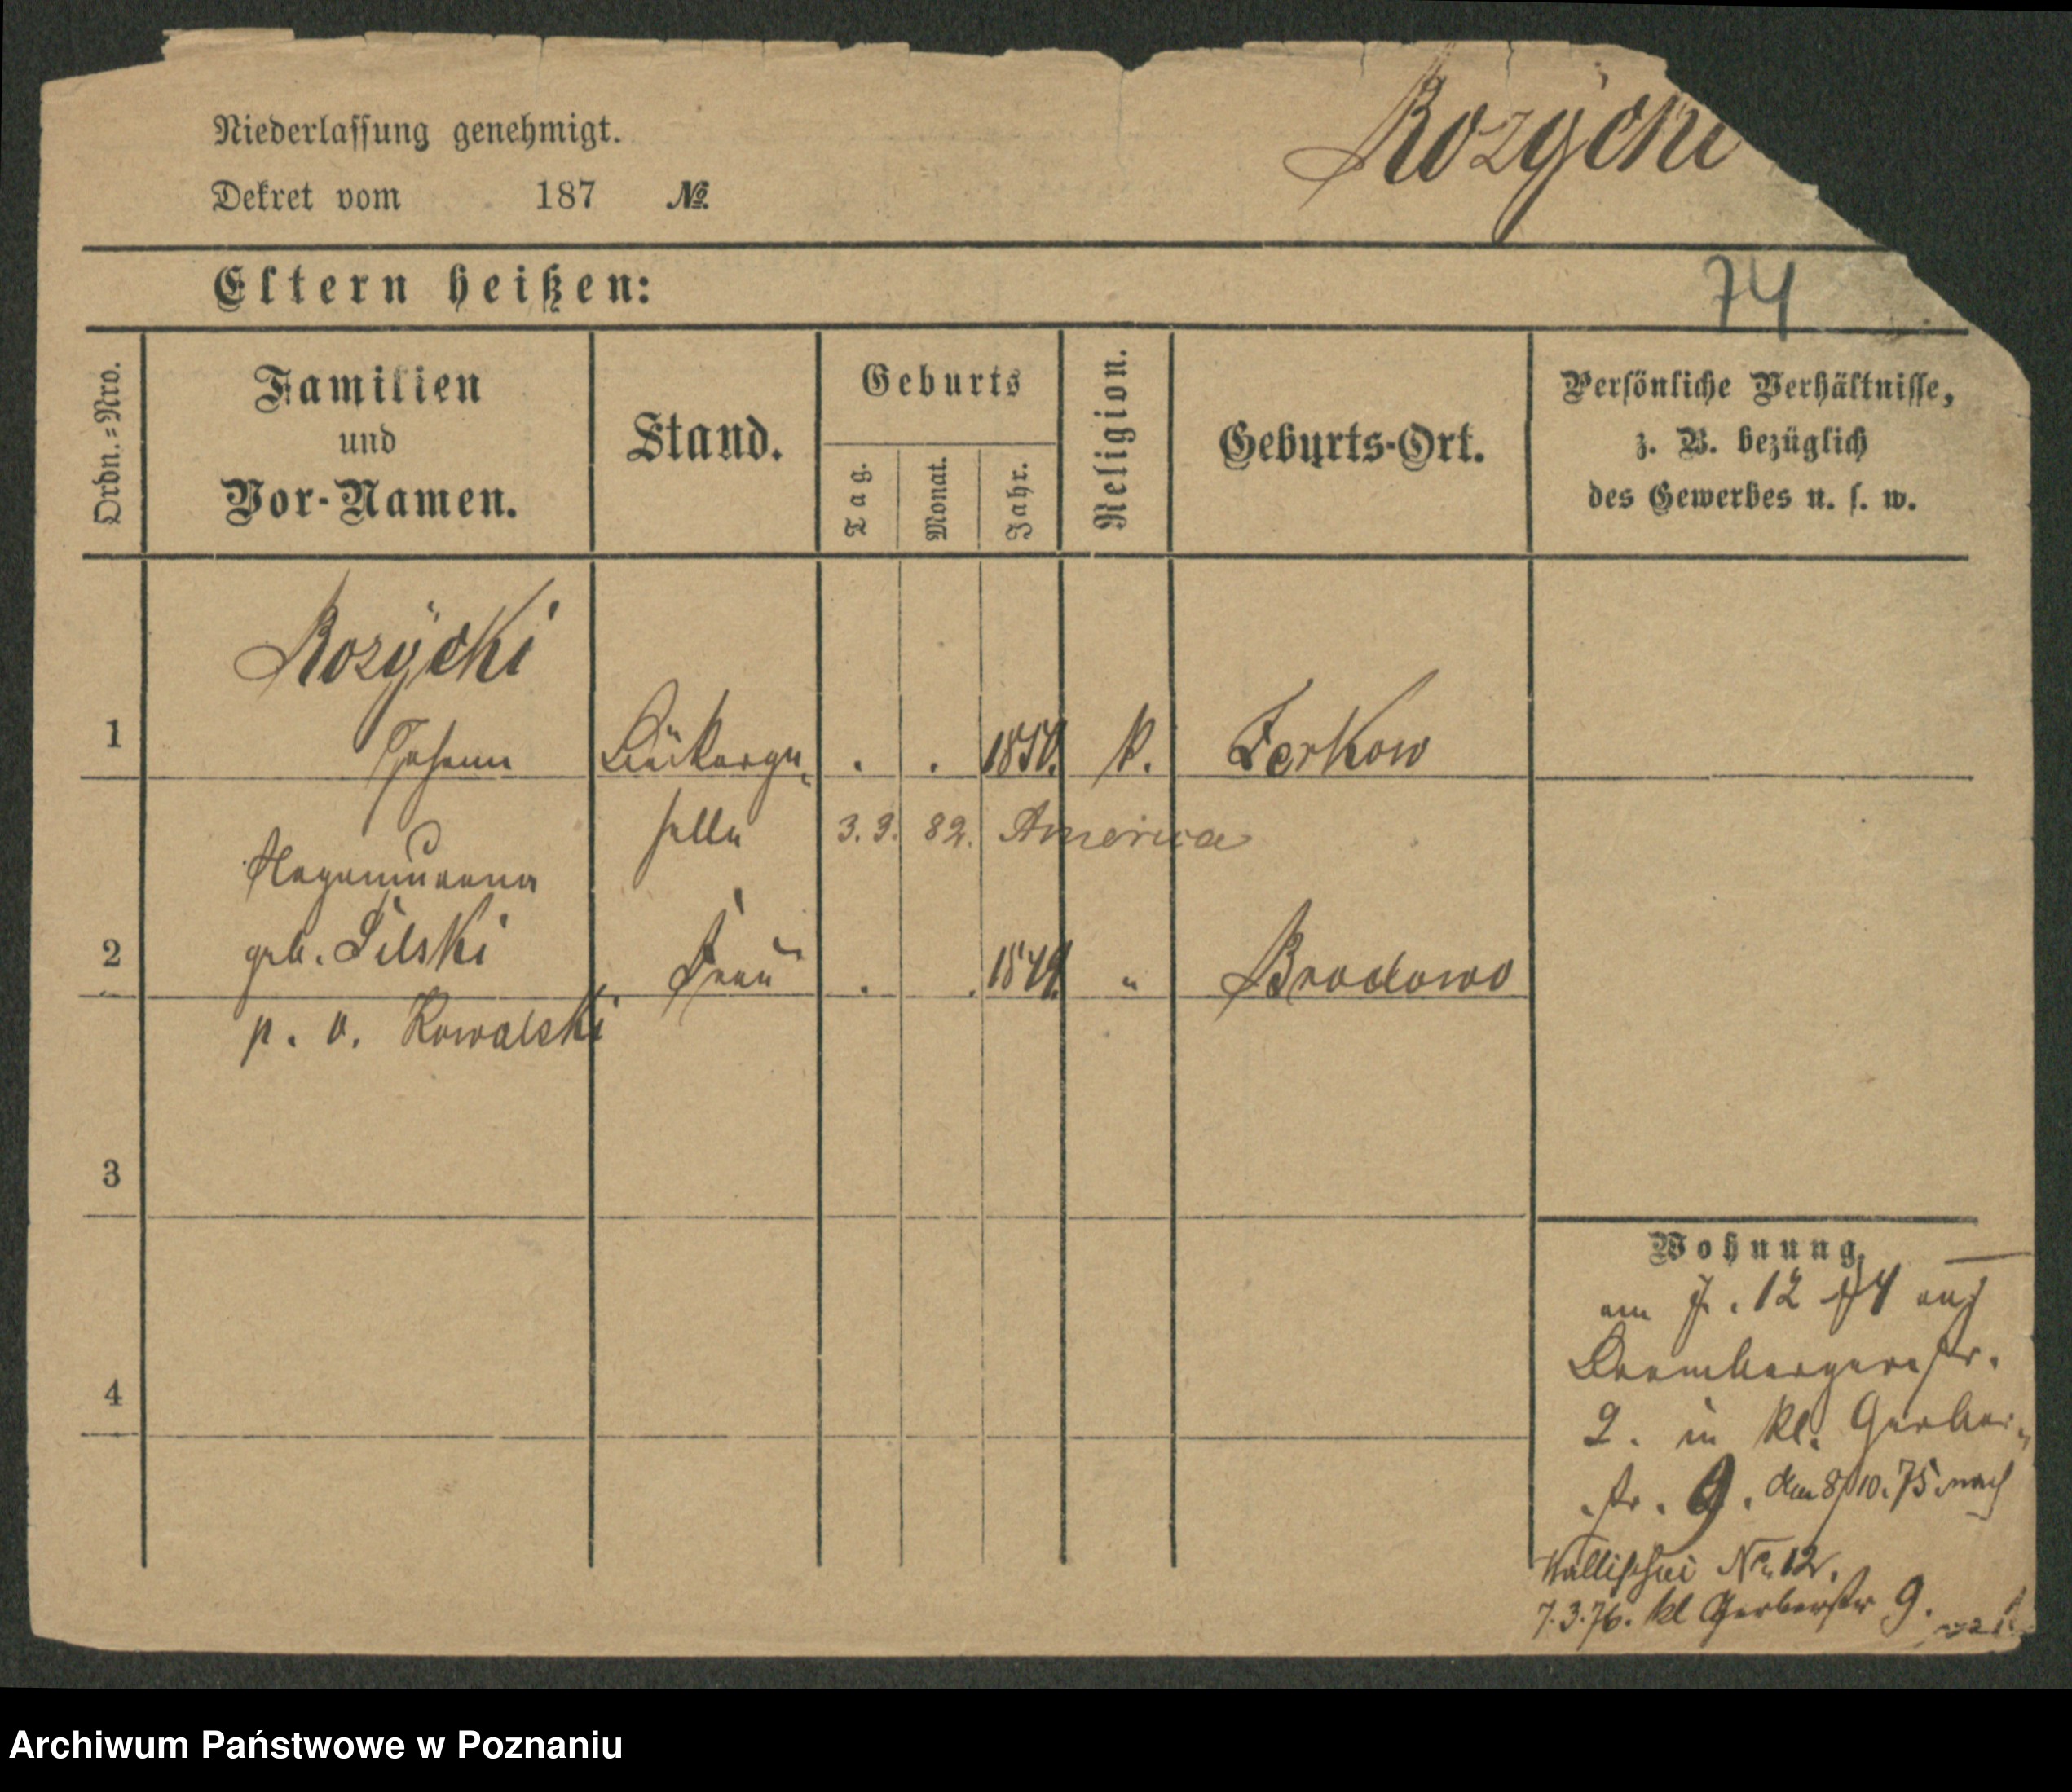 Niederlassung genehmigt.
Rozÿcki
Dekret vom 187 №.
Eltern heißen:
74
Ordn.=Nro.
Familien
und
Vor-Namen.
Stand.
Geburts
Tag.
Monat.
Jahr.
Religion.
Geburts-Ort.
Persönliche Verhältnisse,
z. B. bezüglich
des Gewerbes u. s. w.
Rozÿcki
1 Johann Bäckerge- . . 1850. k. Zerkow
selle 3. 3. 82. America
geb. Silski
2 Frau . . 1849. " Brodowo
p. v. Kowalski
3
4
Wohnung.
am 7. 12 74 aus
Brombergerstr.
2. in kl. Gerber-
str. 9. den 8/10. 75 nach
Wallischei No 12.
7.3.76. kl Gerberstr 9.
Archiwum Państwowe w Poznaniu